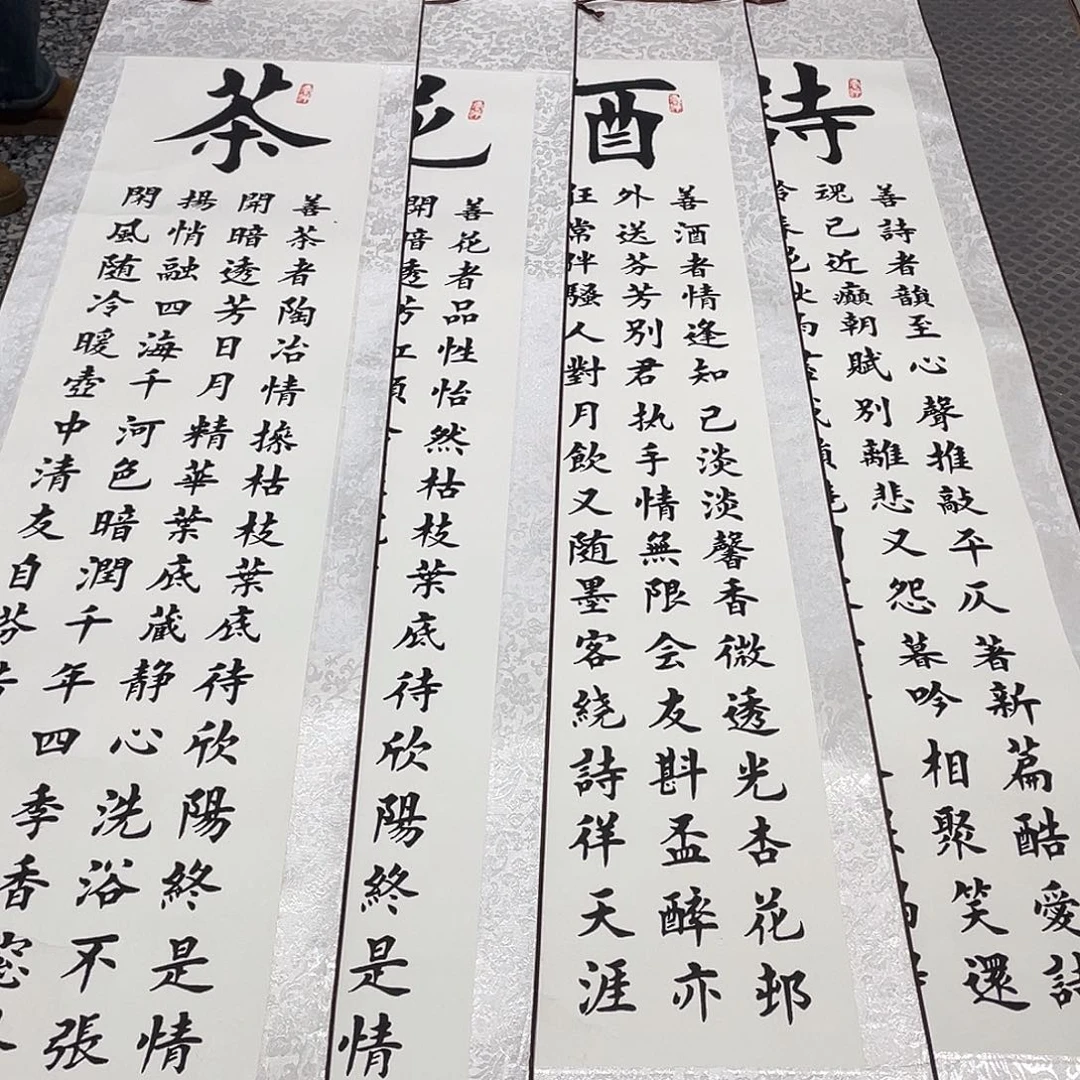 詩
善詩者韻至心聲推敲平仄著新篇酷愛詩
魂已近癲朝賦別離悲又怨暮吟相聚笑還
酒
善酒者情逢知己淡淡馨香微透光杏花邨
外送芬芳別君执手情無限会友斟盃醉亦
狂常伴騷人對月飲又随墨客繞詩徉天涯
花
善花者品性怡然枯枝葉底待欣陽終是情
開暗透芳紅
茶
善茶者陶冶情操枯枝葉底待欣陽終是情
開暗透芳日月精華葉底蔵静心洗浴不張
揚悄融四海千河色暗潤千年四季香窓外
閑風随冷暖壺中清友自芬芳